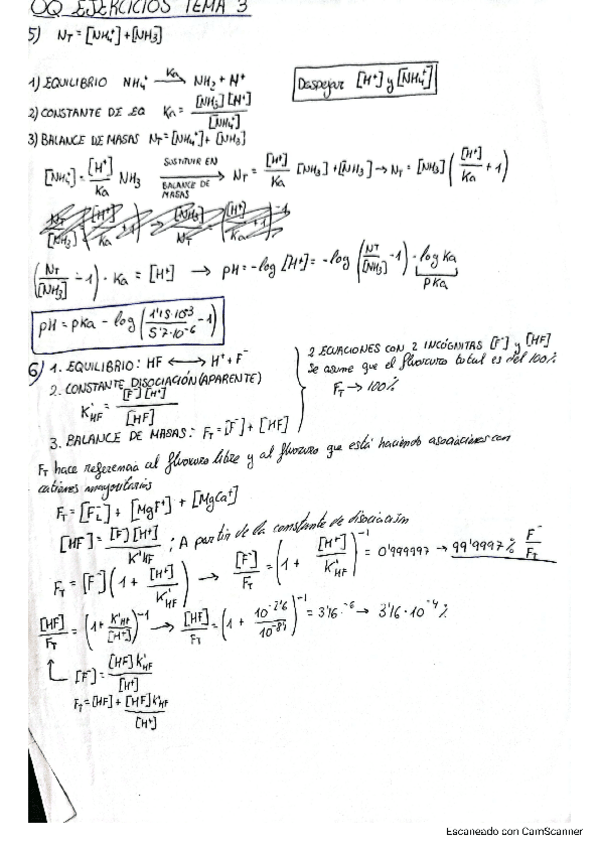 OQ EJERCICIOS TEMA 3
5) N_T = [NH₄⁺] + [NH₃]
1) EQUILIBRIO NH₄⁺ —Ka→ NH₂ + H⁺
Despejar [H⁺] y [NH₄⁺]
2) CONSTANTE DE EQ Ka = [NH₃][H⁺] / [NH₄⁺]
3) BALANCE DE MASAS N_T = [NH₄⁺] + [NH₃]
[NH₄⁺] = [H⁺]/Ka NH₃ SUSTITUIR EN BALANCE DE MASAS → N_T = [H⁺]/Ka [NH₃] + [NH₃] → N_T = [NH₃] ([H⁺]/Ka + 1)
(N_T/[NH₃] - 1) · Ka = [H⁺] → pH = -log [H⁺] = -log (N_T/[NH₃] - 1) - log Ka
pKa
pH = pKa - log (1'15·10⁻³ / 5'7·10⁻⁶ - 1)
6) 1. EQUILIBRIO: HF ⟷ H⁺ + F⁻
2. CONSTANTE DISOCIACIÓN (APARENTE)
K'HF = [F⁻][H⁺] / [HF]
3. BALANCE DE MASAS: F_T = [F⁻] + [HF]
2 ECUACIONES CON 2 INCÓGNITAS [F⁻] y [HF]
Se asume que el fluoruro total es del 100%
F_T → 100%
F_T hace referencia al fluoruro libre y al fluoruro que está haciendo asociaciones con
cationes mayoritarios
F_T = [F_L⁻] + [MgF⁺] + [MgCa⁺]
[HF] = [F⁻][H⁺] / K'HF ; A partir de la constante de disociación
F_T = [F⁻] (1 + [H⁺]/K'HF) → [F⁻]/F_T = (1 + [H⁺]/K'HF)⁻¹ = 0'999997 → 99'9997% F⁻/F_T
[HF]/F_T = (1 + K'HF/[H⁺])⁻¹ → [HF]/F_T = (1 + 10⁻²'⁶/10⁻⁸'¹)⁻¹ = 3'16·⁻⁶ → 3'16·10⁻⁴ %
[F⁻] = [HF] K'HF / [H⁺]
F_T = [HF] + [HF] K'HF / [H⁺]
Escaneado con CamScanner